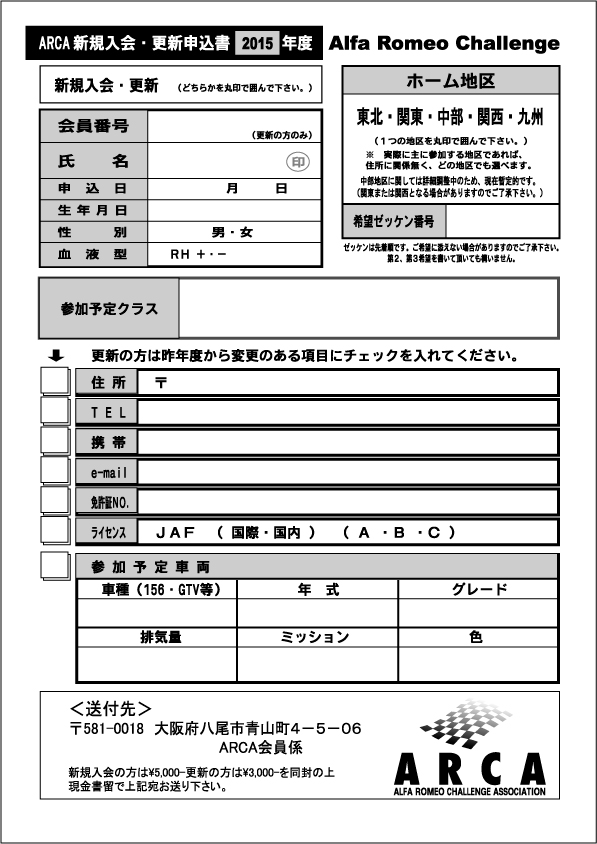 ARCA 新規入会・更新申込書 2015 年度 Alfa Romeo Challenge
新規入会・更新 （どちらかを丸印で囲んで下さい。）
会員番号 （更新の方のみ）
氏 名 印
申 込 日 月 日
生年月日
性 別 男・女
血 液 型 RH ＋・－
ホーム地区
東北・関東・中部・関西・九州
（１つの地区を丸印で囲んで下さい。）
※ 実際に主に参加する地区であれば、
住所に関係無く、どの地区でも選べます。
中部地区に関しては詳細調整中のため、現在暫定的です。
（関東または関西となる場合がありますのでご了承下さい。）
希望ゼッケン番号
ゼッケンは先着順です。ご希望に添えない場合がありますのでご了承下さい。
第２、第３希望を書いて頂いても構いません。
参加予定クラス
更新の方は昨年度から変更のある項目にチェックを入れてください。
住 所 〒
ＴＥＬ
携 帯
e-mail
免許証NO.
ライセンス ＪＡＦ （ 国際・国内 ） （ Ａ ・Ｂ ・Ｃ ）
参 加 予 定 車 両
車種（156・GTV等） 年 式 グレード
排気量 ミッション 色
＜送付先＞
〒581-0018 大阪府八尾市青山町４－５－０６
ARCA会員係
新規入会の方は¥5,000-更新の方は¥3,000-を同封の上
現金書留で上記宛お送り下さい。
ARCA
ALFA ROMEO CHALLENGE ASSOCIATION